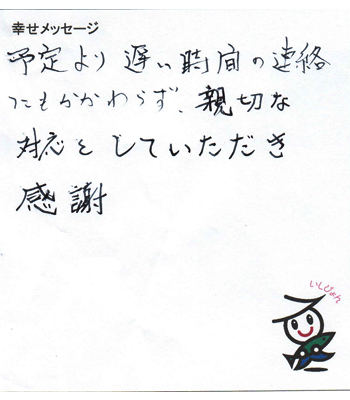 幸せメッセージ
予定より遅い時間の連絡
にもかかわらず、親切な
対応をしていただき
感謝
いしぴょん